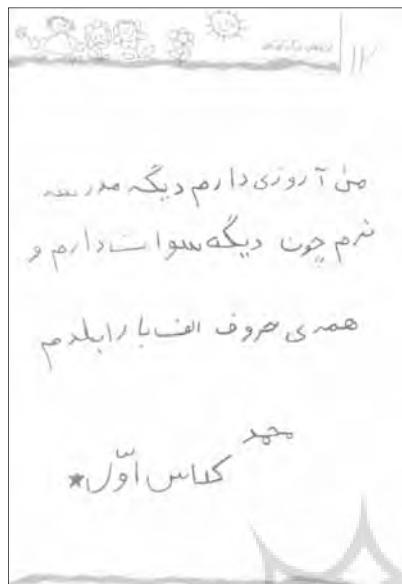 ۱۲
من آروزی دارم دیگه مدرسه
نرم چون دیگه سوات دارم و
همه ی حروف الف با را بلدم
محمد
کلاس اوّل*